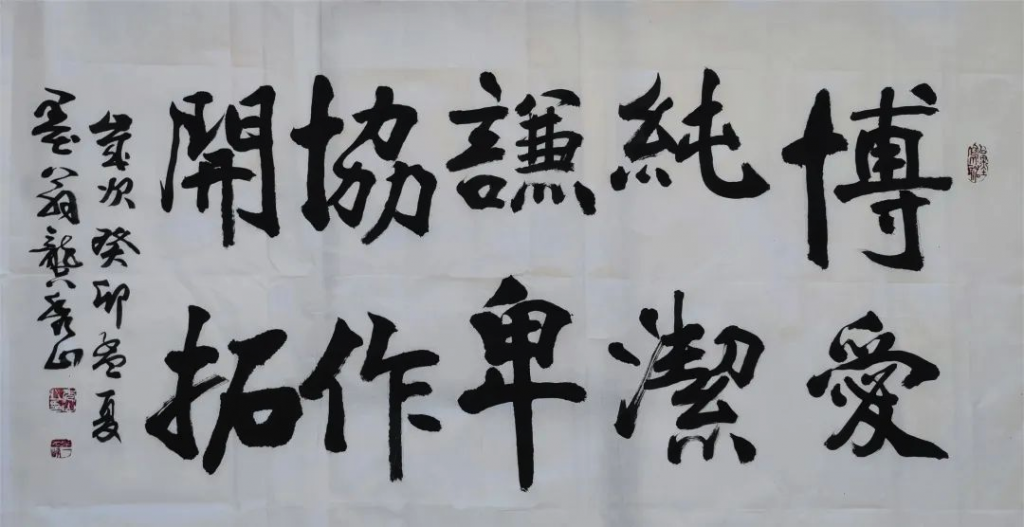 博愛
純潔
謙卑
協作
開拓
歲次癸卯孟夏
墨翁龔秀山